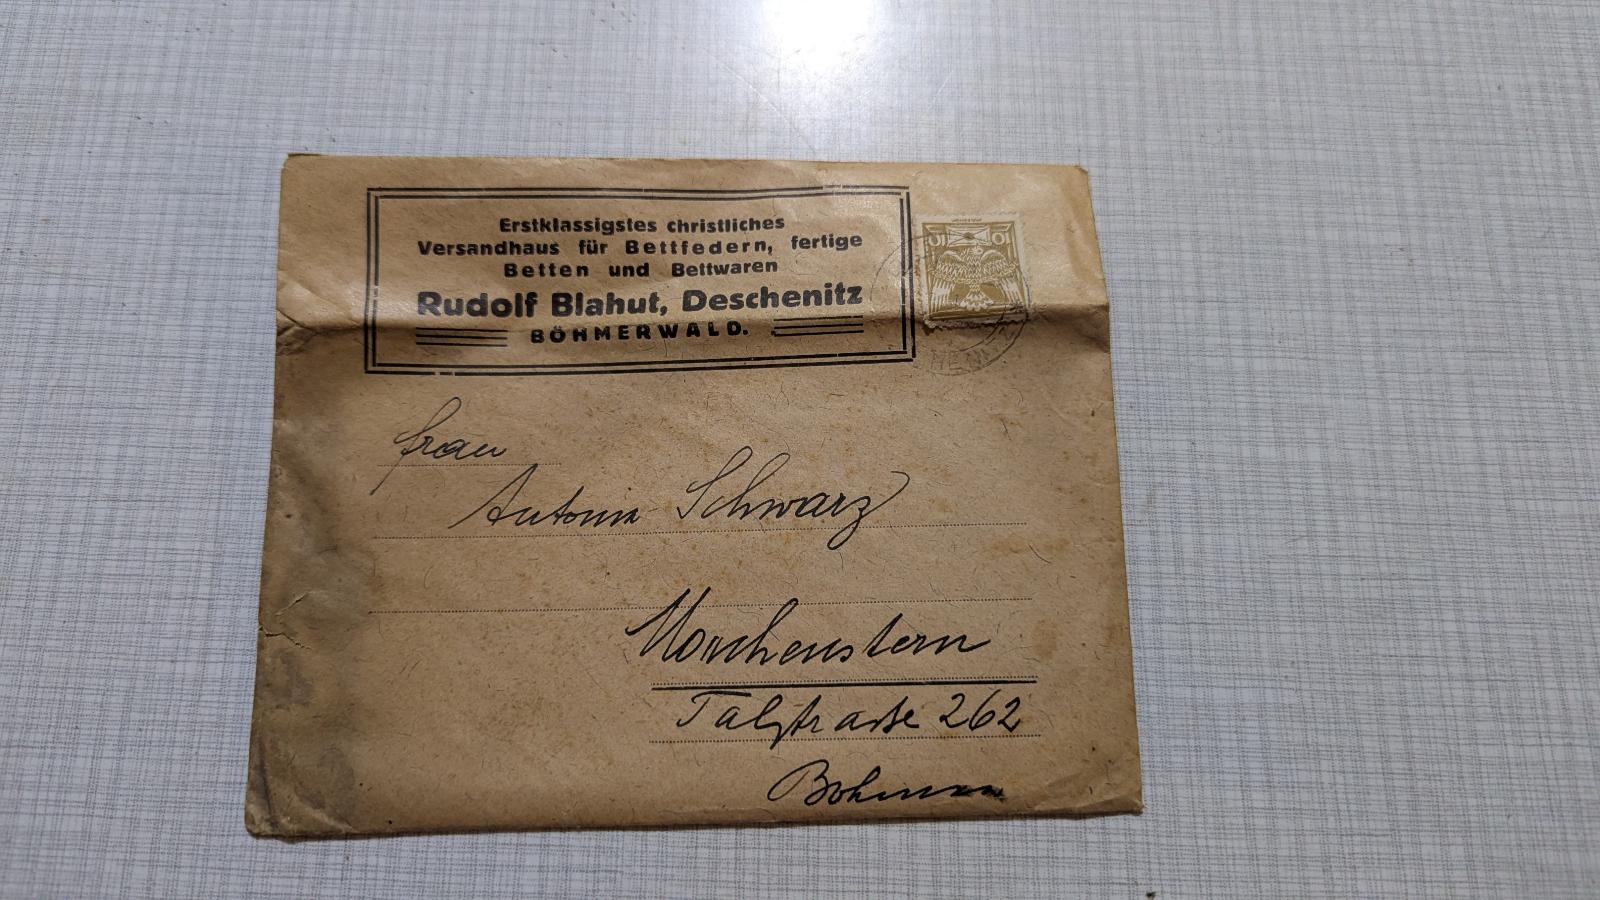 Erstklassigstes christliches
Versandhaus für Bettfedern, fertige
Betten und Bettwaren
Rudolf Blahut, Deschenitz
BÖHMERWALD.
10 10
Frau
Antonia Schwarz
Morchenstern
Talstraße 262
Böhmen